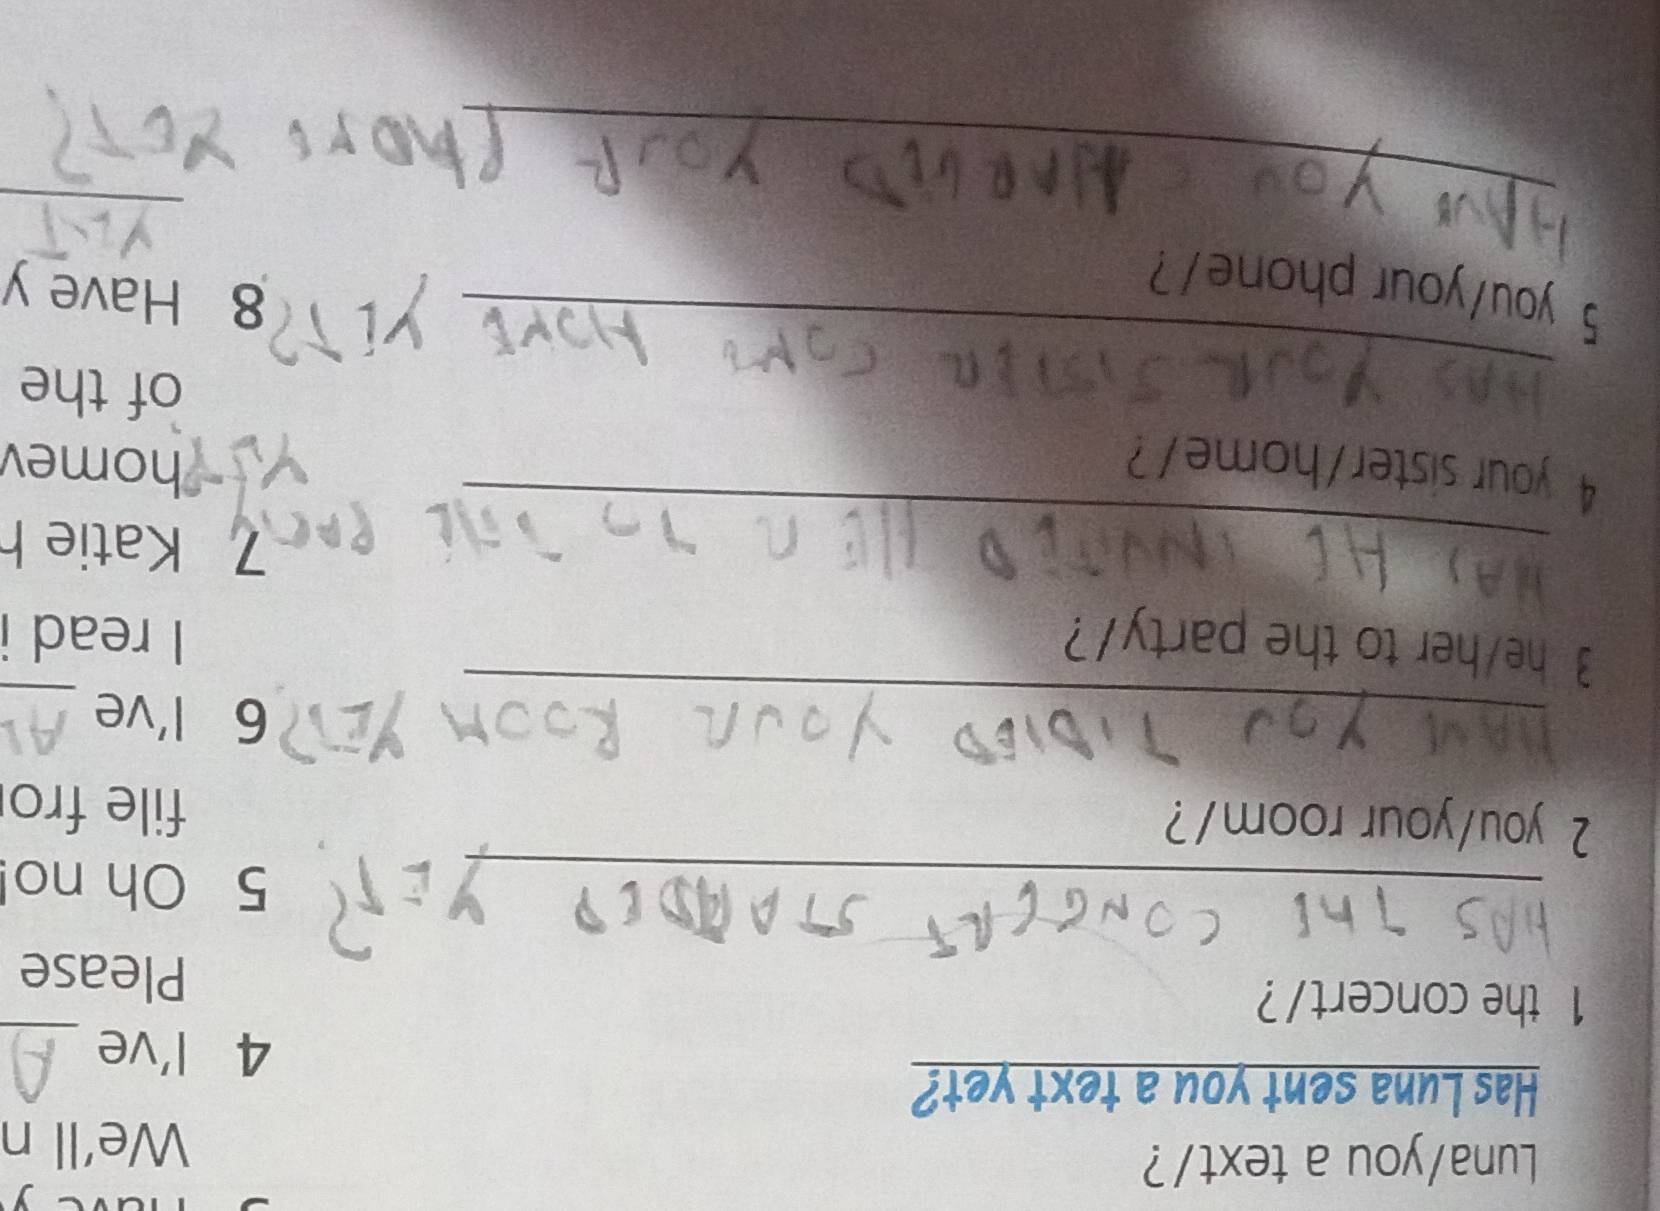 Luna/you a text/?
Has Luna sent you a text yet?
1 the concert/?
HAS THE CONCERT STARDED YET?
2 you/your room/?
HAVE YOU TIDIED YOUR ROOM YET?
3 he/her to the party/?
HAS HE INVITED HER TO THE PARTY
YET?
4 your sister/home/?
HAS YOUR SISTER COME HOME YET?
5 you/your phone/?
HAVE YOU YOUR PHONE YET?
We'll n
4 I've A
Please
5 Oh no!
file fro
6 I've AL
I read i
7 Katie h
homew
of the
8 Have y
YET